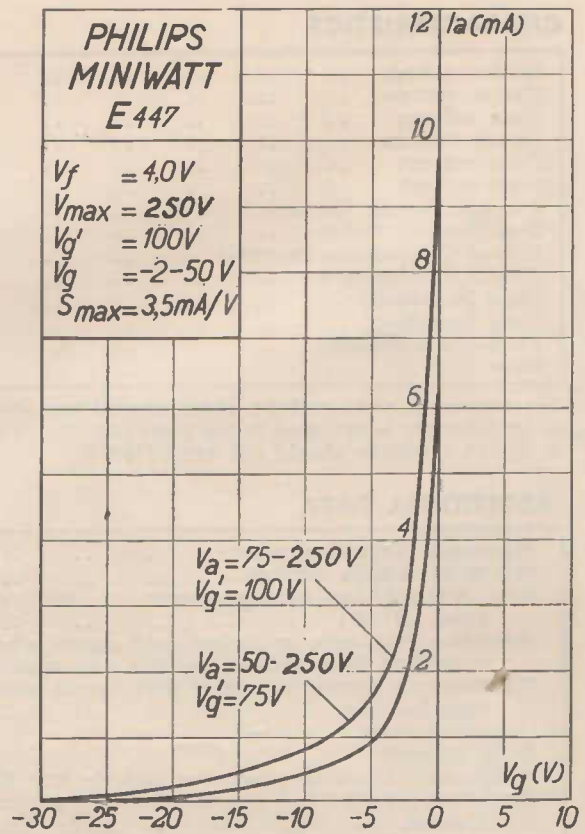 PHILIPS
MINIWATT
E 447
Vf = 4,0V
Vmax = 250V
Vg' = 100V
Vg = -2-50 V
Smax = 3,5mA/V
12 Ia(mA)
10
8
6
4
Va = 75-250V
Vg' = 100V
Va = 50-250V
Vg' = 75V
2
Vg (V)
-30 -25 -20 -15 -10 -5 0 5 10